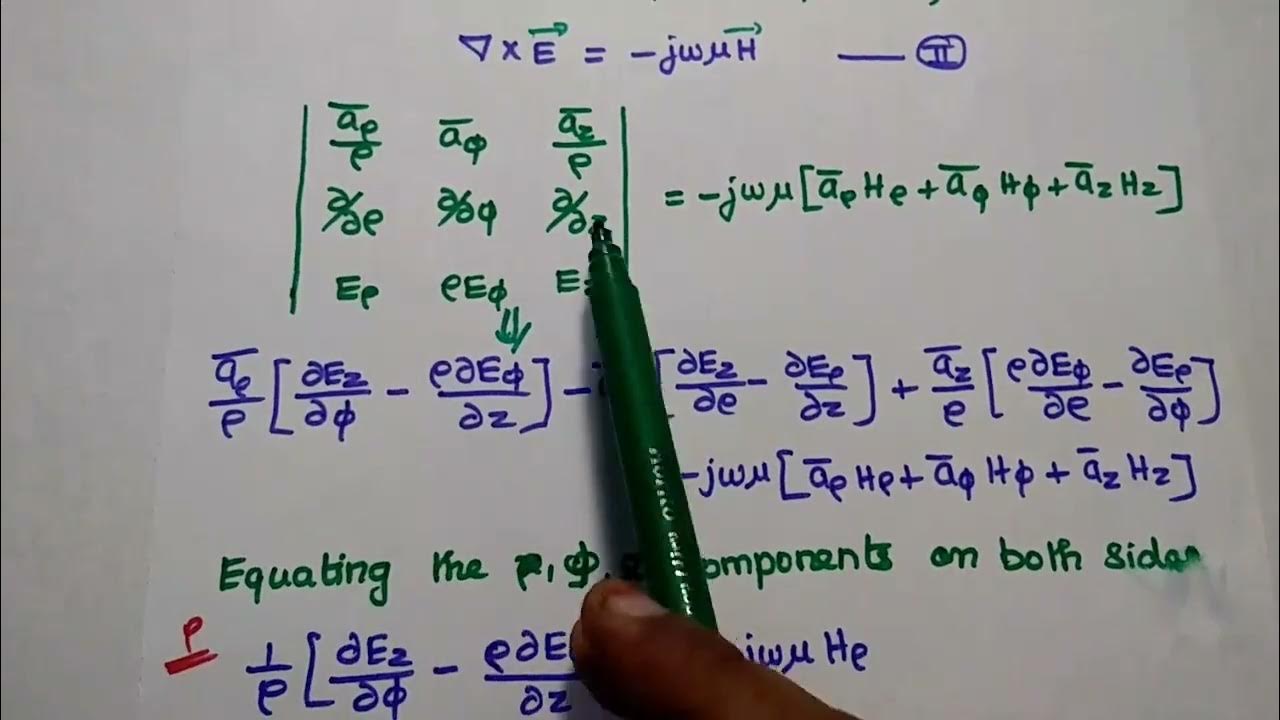 ∇ × E⃗ = -jωμH⃗ —— Ⅱ
| āρ/ρ āφ āz/ρ |
| ∂/∂ρ ∂/∂φ ∂/∂z | = -jωμ[āρHρ + āφHφ + āzHz]
| Eρ ρEφ E
⇓
āρ/ρ [∂Ez/∂φ - ρ∂Eφ/∂z] - [∂Ez/∂ρ - ∂Eρ/∂z] + āz/ρ [ρ∂Eφ/∂ρ - ∂Eρ/∂φ]
-jωμ[āρHρ + āφHφ + āzHz]
Equating the ρ, φ, components on both sides
ρ
1/ρ [∂Ez/∂φ - ρ∂E /∂z jωμHρ